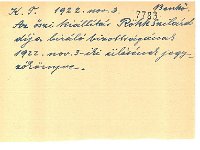 K. T. 1922. nov. 3. Benkó
7783
Az őszi kiállítás Rökk Szilárd
díja biráló bizottságának
1922. nov. 3-iki ülésének jegy-
zőkönyve.